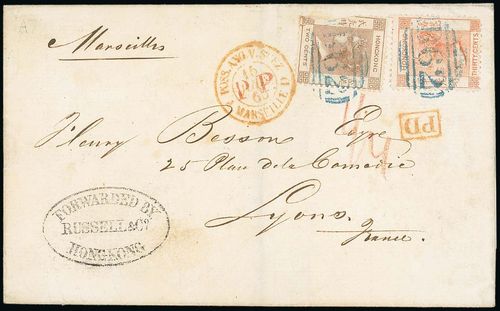 Marseilles
TWO CENTS
HONGKONG
HONGKONG
THIRTY CENTS
B62
B62
POSS. ANG. V. SUEZ
PP
MARSEILLE
PD
Henry Besson Eyre
25 Place de la Comédie
Lyons
France.
FORWARDED BY
RUSSELL & Co
HONGKONG